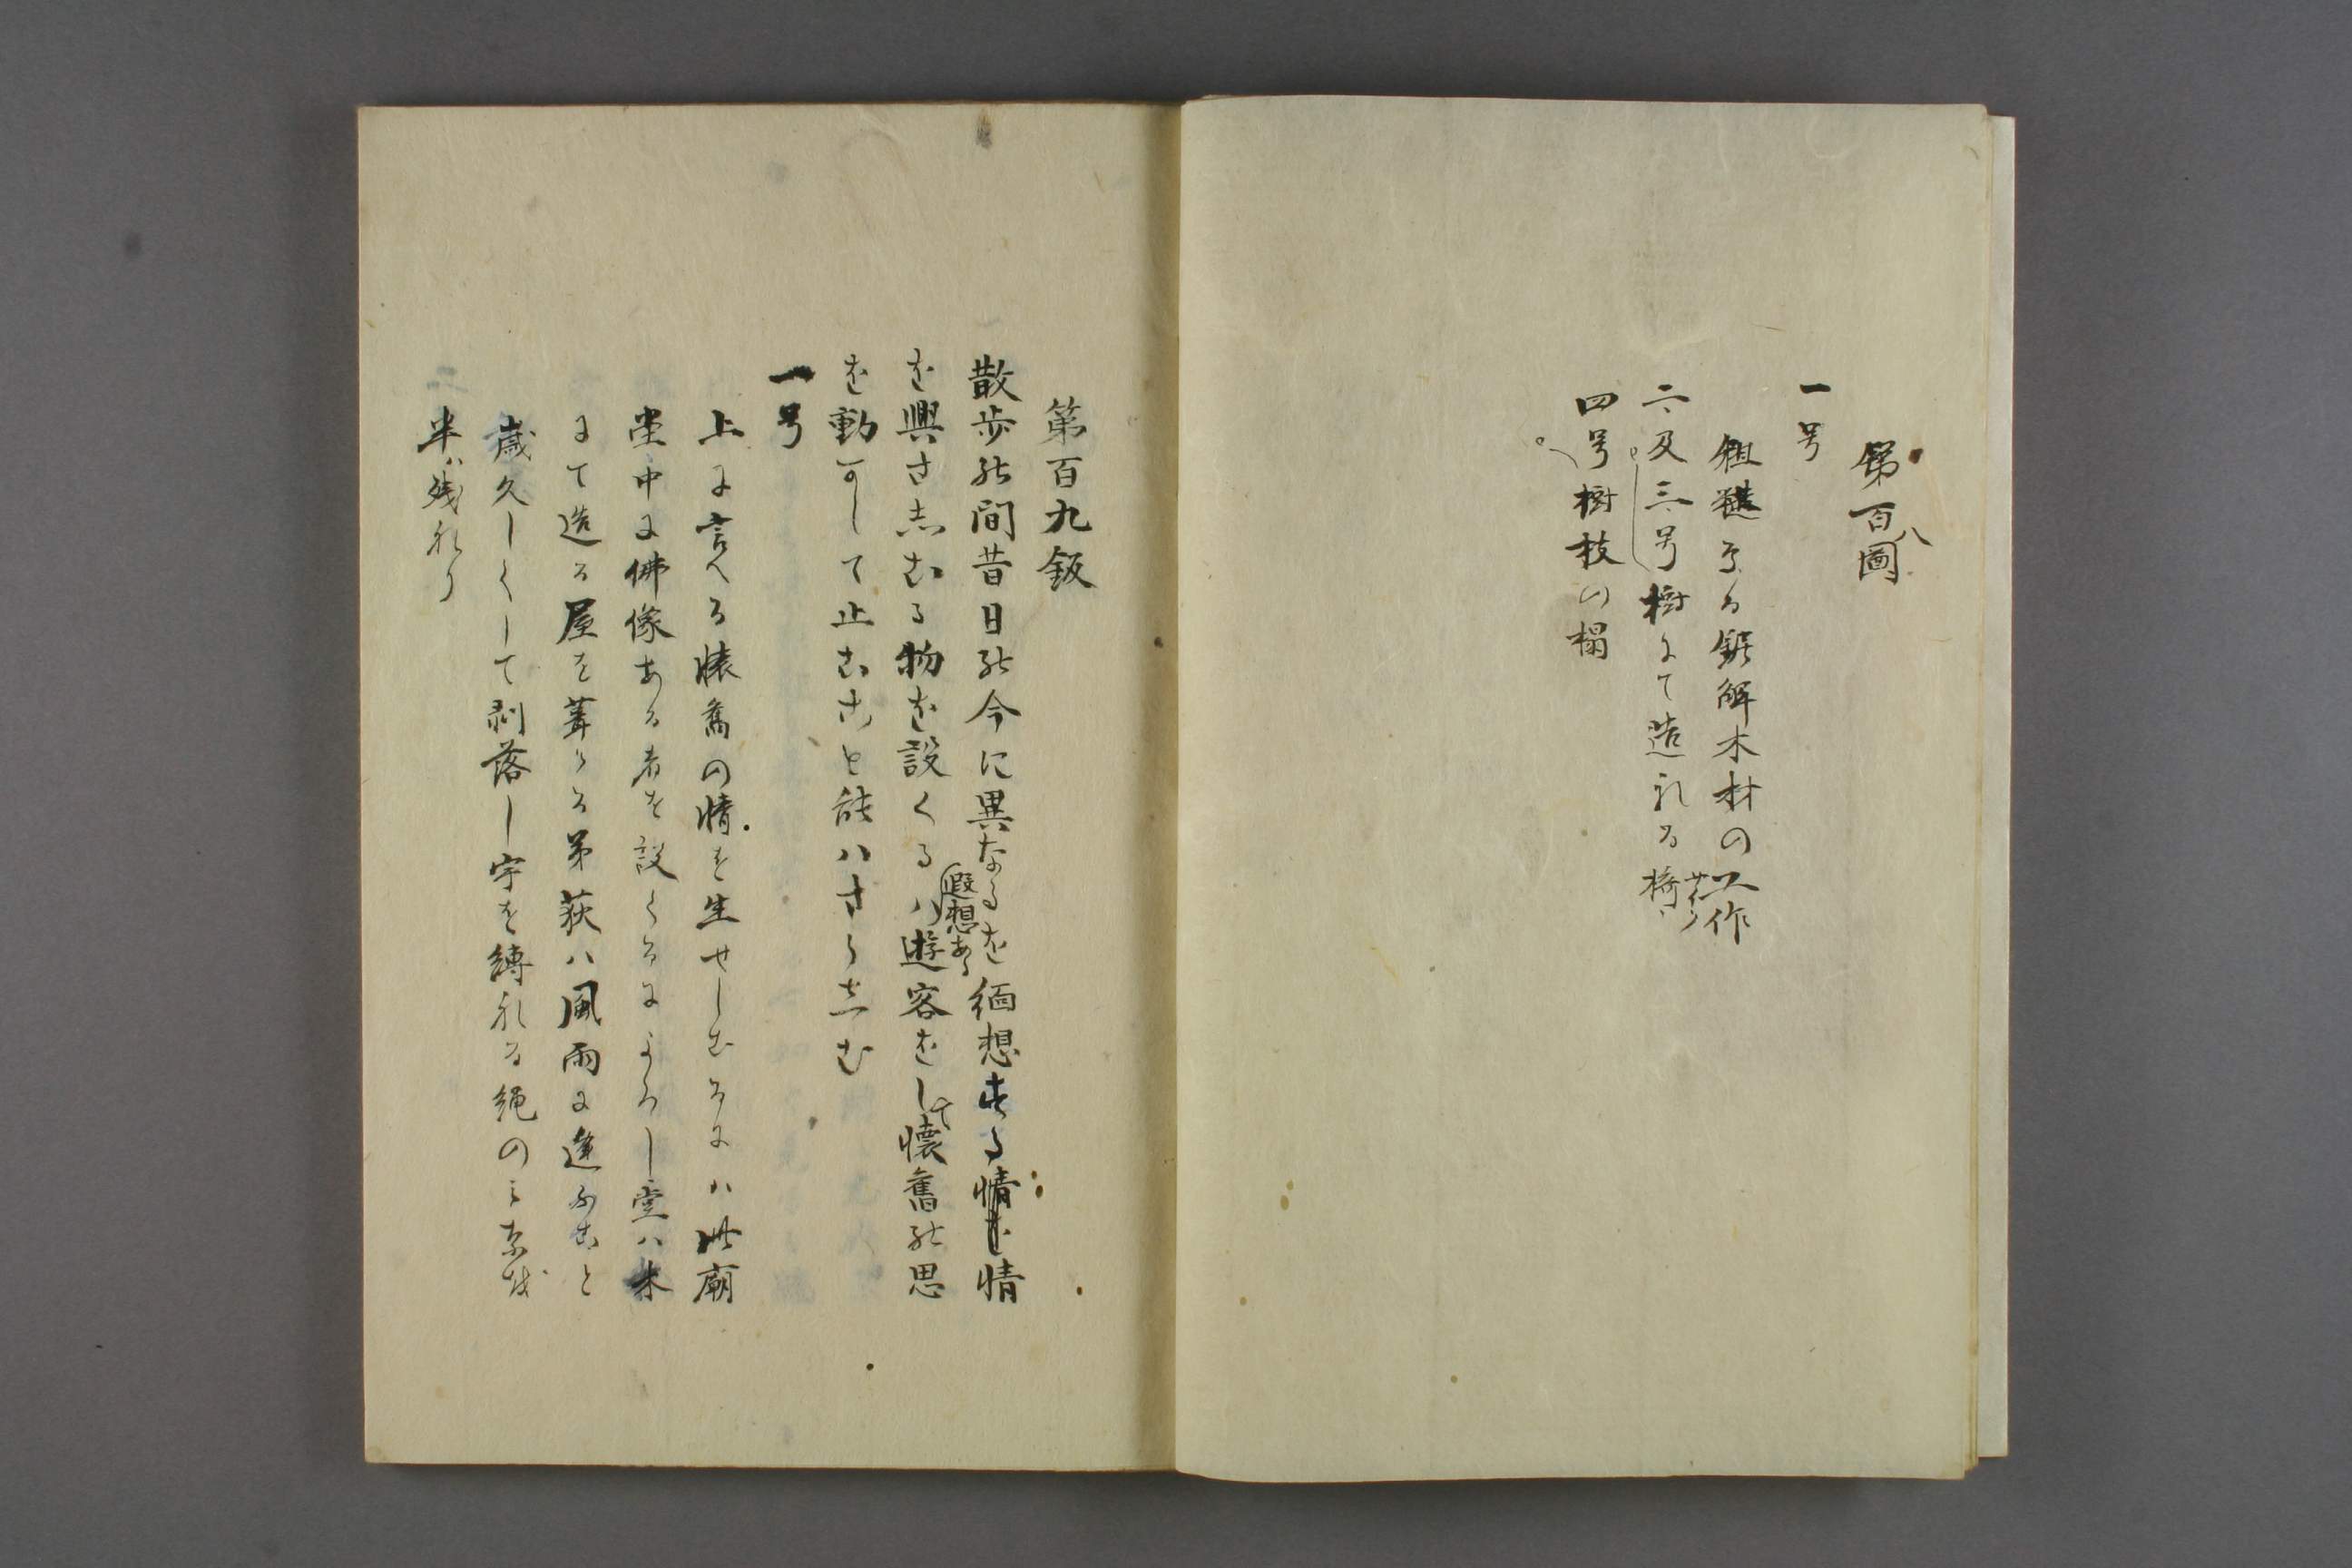 第百八圖
一号
粗糙なる鋸解木材の工作
サイク
二、及三、号樹にて造れる椅、
四号樹枝の榻
第百九鈑
散歩の間昔日の今に異なるを緬想する情を情
を興さしむる物を設くるハ遊客をして懐舊の思
遐想あり
を動かして止むこと能ハさらしむ
一号
上に言へる懐舊の情を生せしむるにハ此廟
堂中に佛像ある者を設くるによろし堂ハ木
にて造る屋を葺ける茅荻ハ風雨に逢ふこと
歳久しくして剥落し字を縛れる縄のみ
半ハ残れり